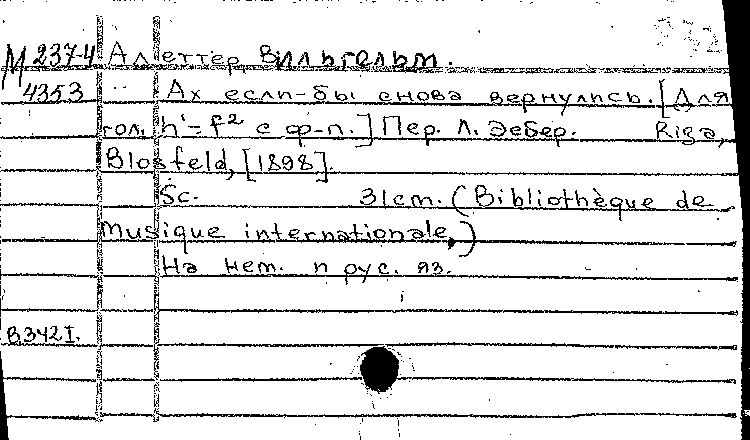 М 237-4 Алеттер, Вильгельм.
4353 Ах если-бы снова вернулись. [Для
гол. h'=f² с ф-п.] Пер. Л. Эебер. Riga,
Blosfeld, [1898].
Sc. 31cm. (Bibliothèque de
musique internationale,)
На нем. и рус. яз.
B342I.